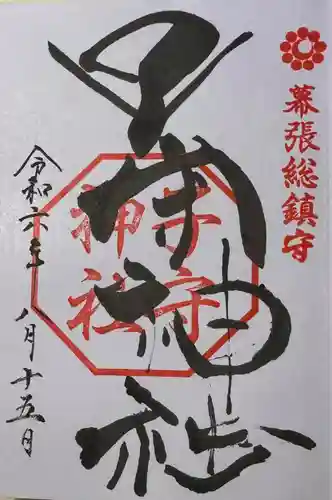 幕張総鎮守
子守神社
子守
神社
令和六年
八月十五日